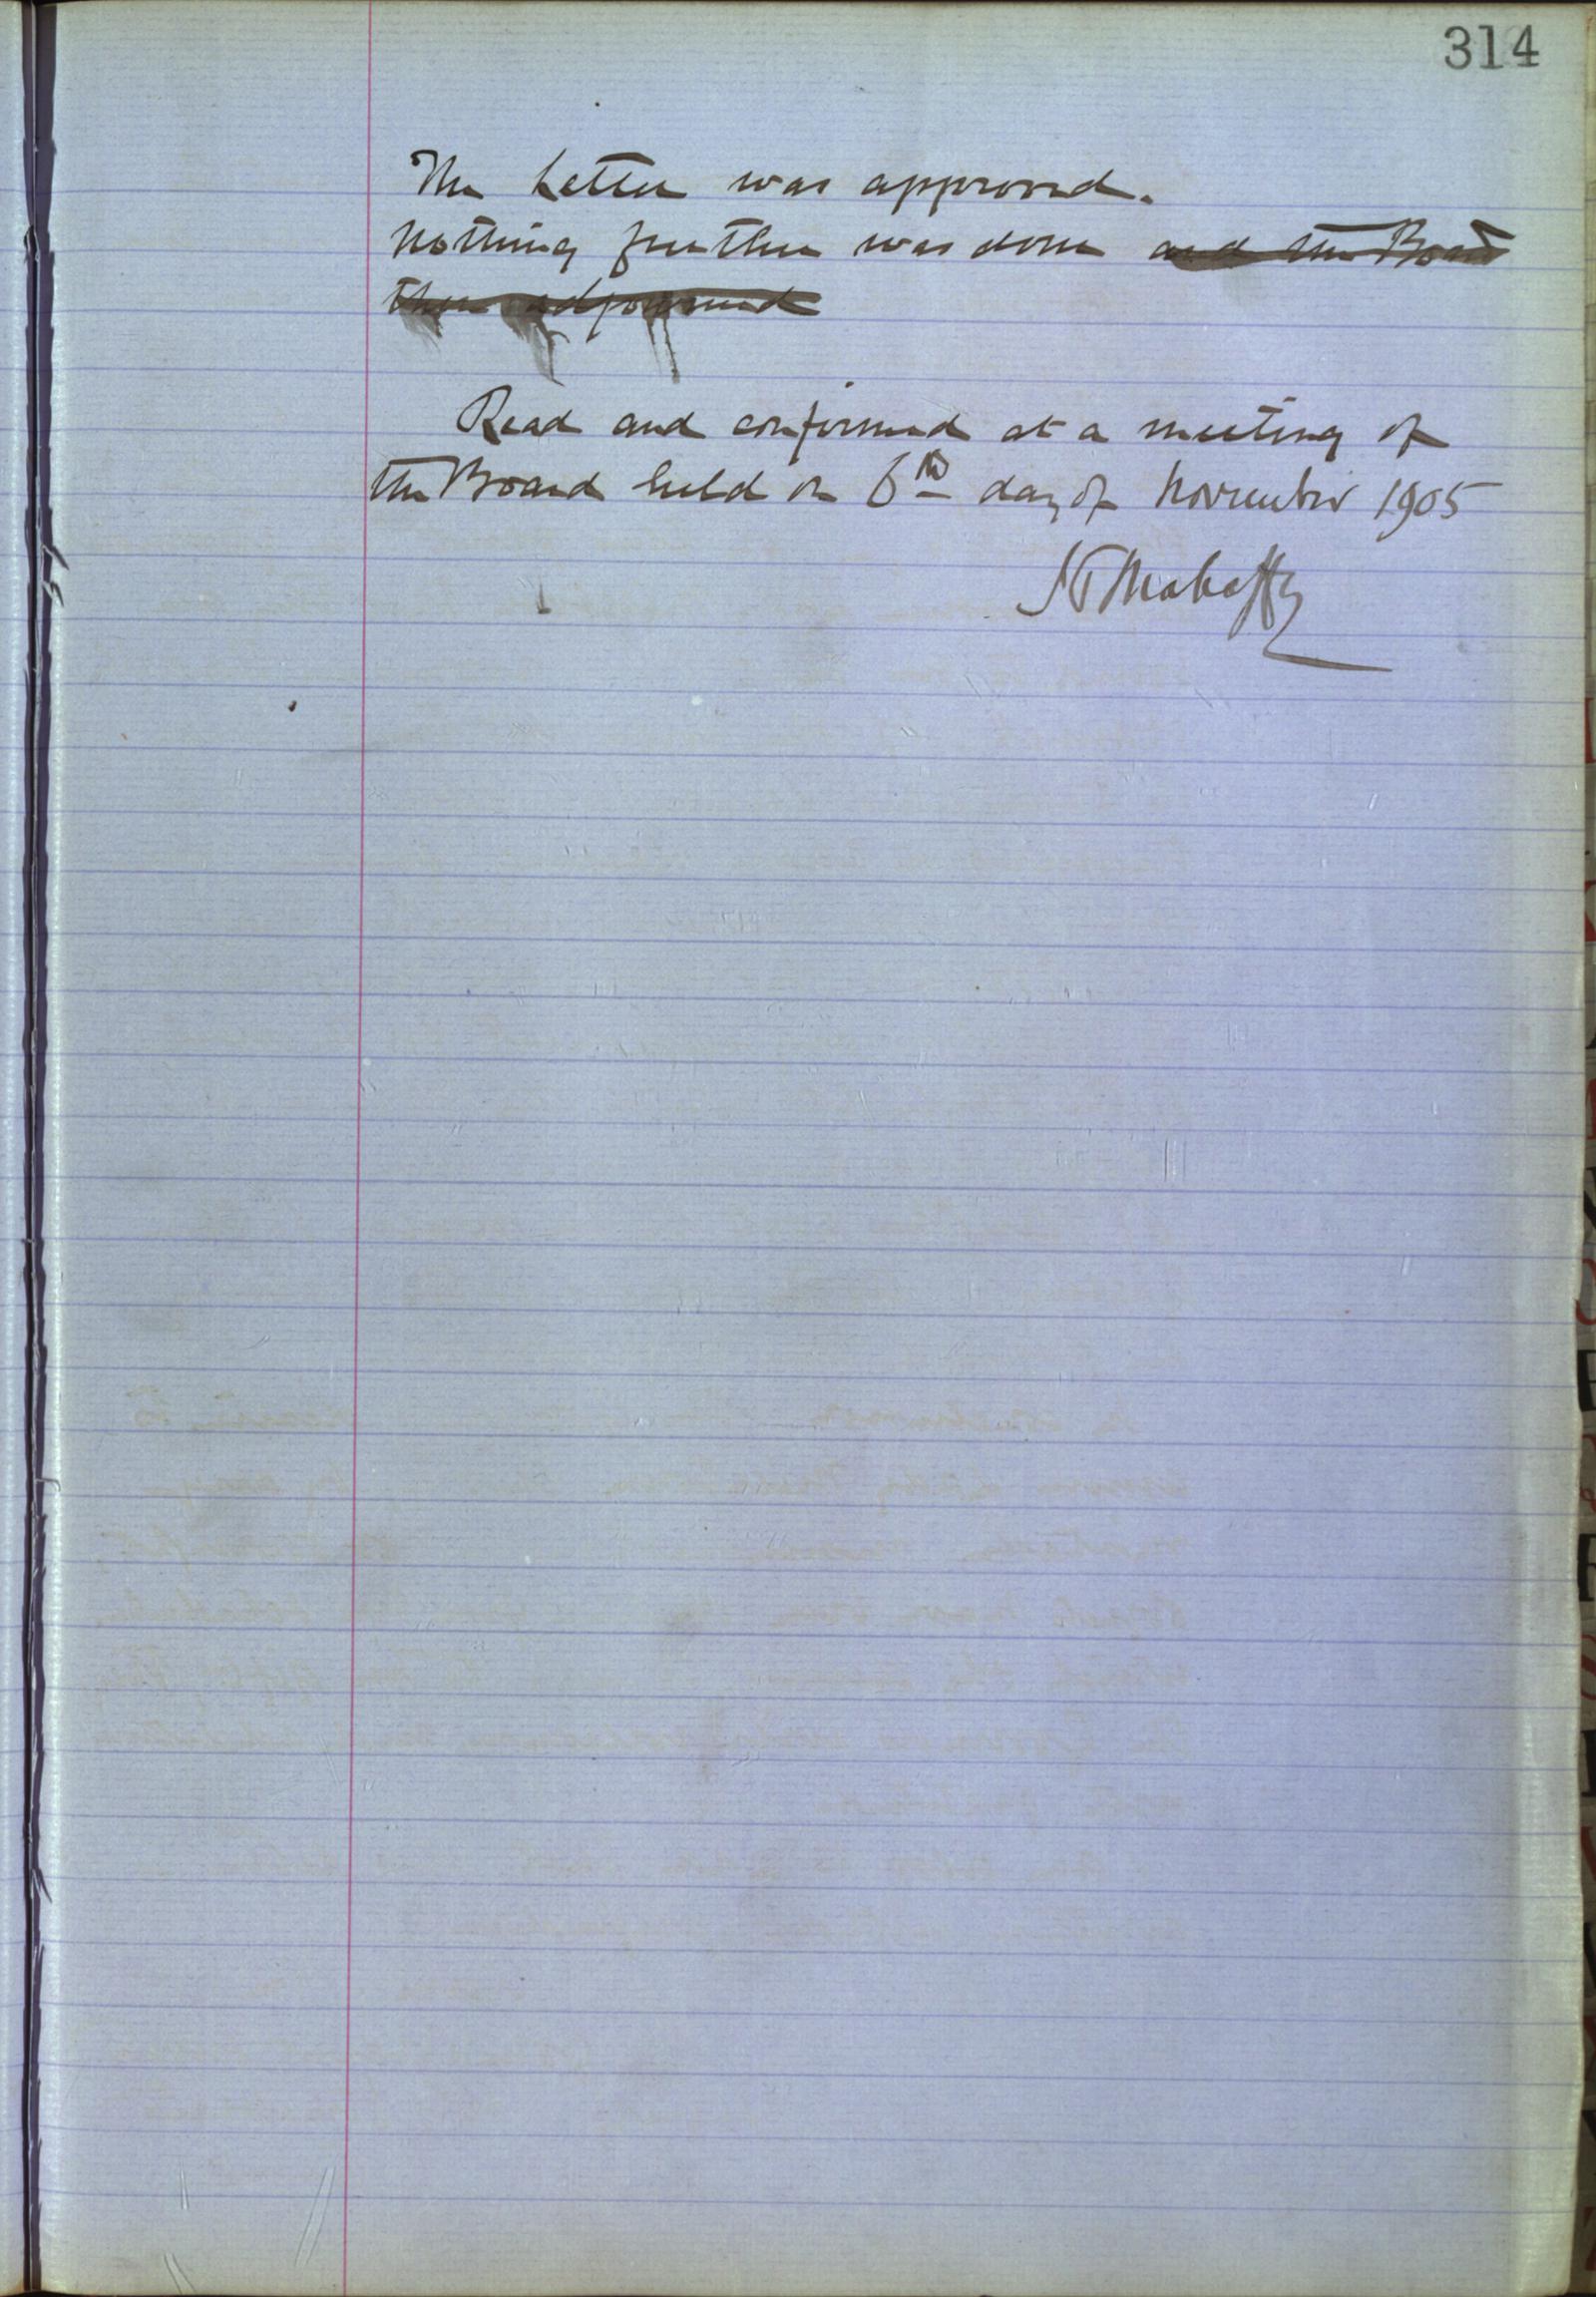 314
The Letter was approved.
Nothing further was done and the Board
then adjourned
Read and confirmed at a meeting of
the Board held on 6th day of November 1905
Mahaffy